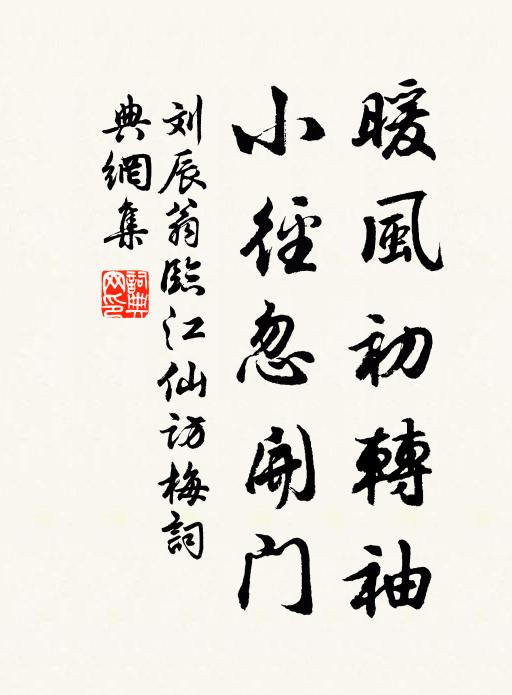 暖風初轉袖
小徑忽開门
刘辰翁臨江仙访梅詞
典網集
詞典
网印